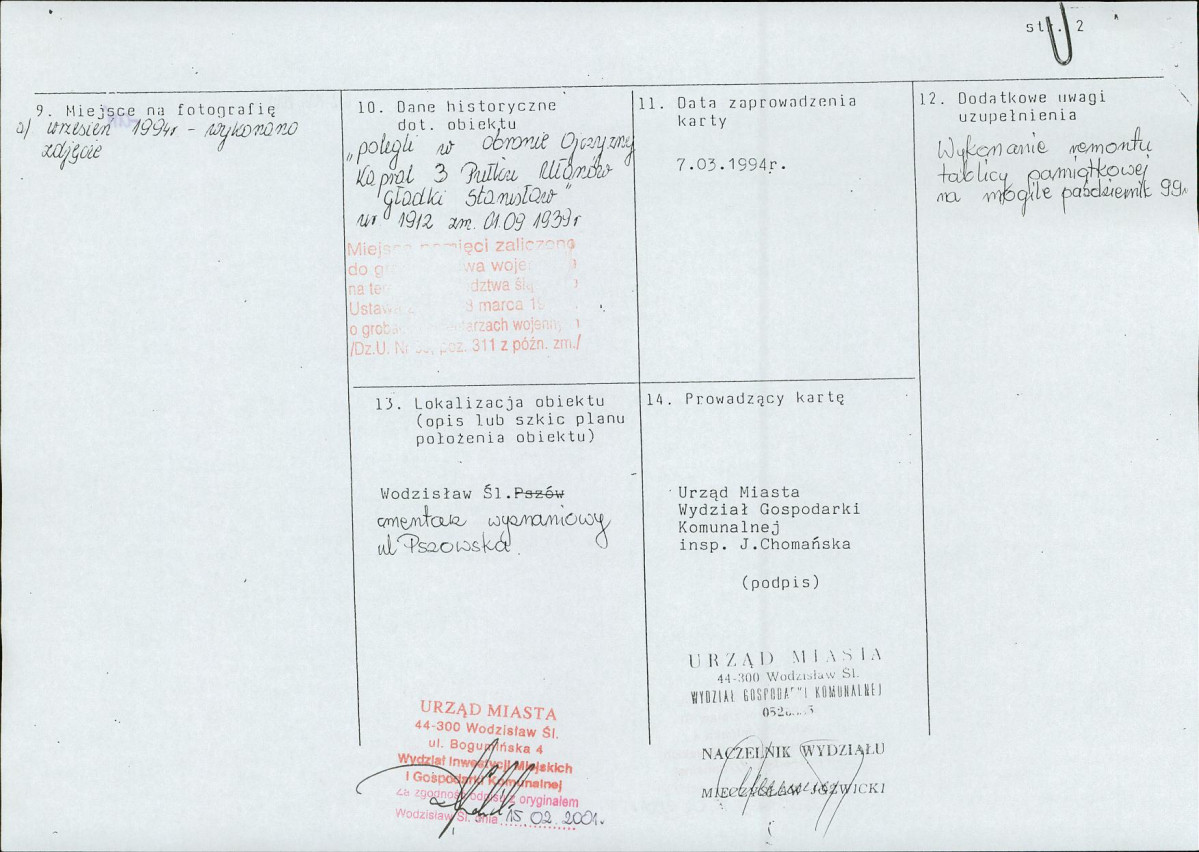 str. 2
9. Miejsce na fotografię
a) wrzesień 1994r - wykonano
zdjęcie
10. Dane historyczne
dot. obiektu
"polegli w obronie Ojczyzny
Kapral 3 Pułku Ułanów
Gładki Stanisław"
ur 1912 zm. 01.09 1939r
Miejsce pamięci zaliczono
do
wa
na
dztwa
Ustawa marca
o
/Dz.U. poz. 311 z późn. zm./
11. Data zaprowadzenia
karty
7.03.1994r.
12. Dodatkowe uwagi
uzupełnienia
Wykonanie remontu
tablicy pamiątkowej
na mogile październik 99r
13. Lokalizacja obiektu
(opis lub szkic planu
położenia obiektu)
Wodzisław Śl. Pszów
cmentarz wyznaniowy
ul Pszowska.
URZĄD MIASTA
44-300 Wodzisław Śl.
ul. Bogumińska 4
Wydział Inwestycji Miejskich
i Gospodarki Komunalnej
za zgodność odpisu z oryginałem
Wodzisław Śl. dnia 15.02.2001r.
14. Prowadzący kartę
Urząd Miasta
Wydział Gospodarki
Komunalnej
insp. J.Chomańska
(podpis)
URZĄD MIASTA
44-300 Wodzisław Śl.
WYDZIAŁ GOSPODARKI KOMUNALNEJ
NACZELNIK WYDZIAŁU
MIECZYSŁAW